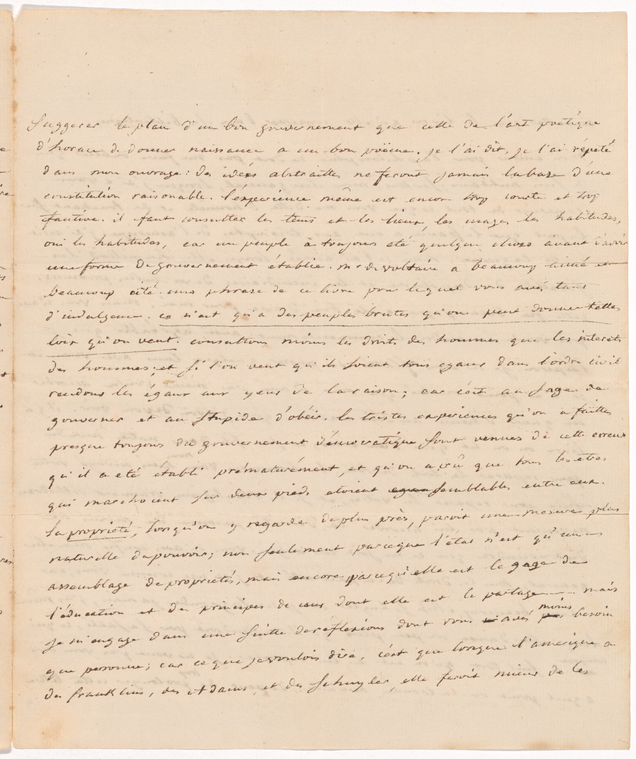 suggerer le plan d'un bon gouvernement que celle de l'art poëtique
d'horace de donner naissance a un bon poëme. je l'ai dit, je l'ai repeté
dans mon ouvrage: des idées abstraittes ne feront jamais la base d'une
constitution raisonable. l'experience même est encor trop courte et trop
fautive. il faut consulter les tems et les lieux, les usages les habitudes,
oui les habitudes, car un peuple a toujours été quelque chose avant
une forme de gouvernement établie. mr de voltaire a beaucoup
beaucoup cité une phrase de ce livre pour lequel vous avés tant
d'indulgence. ce n'est qu'a des peuples brutes qu'on peut donner telles
loix qu'on veut. consultons moins les droits des hommes que les interets
des hommes; et si l'on veut qu'ils soient tous egaux dans l'ordre civil
rendons les égaux aux yeux de la raison; car c'est au sage de
gouverner et au stupide d'obéir. les tristes experiences qu'on a faittes
presque toujours du gouvernement démocratique sont venues de cette erreur
qu'il a eté établi prématurément et qu'on a crû que tous les etres
qui marchoient sur deux pieds etoient semblables entre eux.
la propriété, lorsqu'on y regarde de plus près, paroit une mesure plus
naturelle de pouvoir; non seulement parceque l'état n'est qu'un
assemblage de propriétés, mais encore parcequ'elle est le gage de
l'éducation et des principes de dont elle est le partage mais
je m'engage dans une suitte de reflexions dont vous avés moins besoin
que personne; car ce que je voulois dire, c'est que lorsque l'amerique a
des franklins, des Adams, et des Schuyler, elle feroit mieux de les